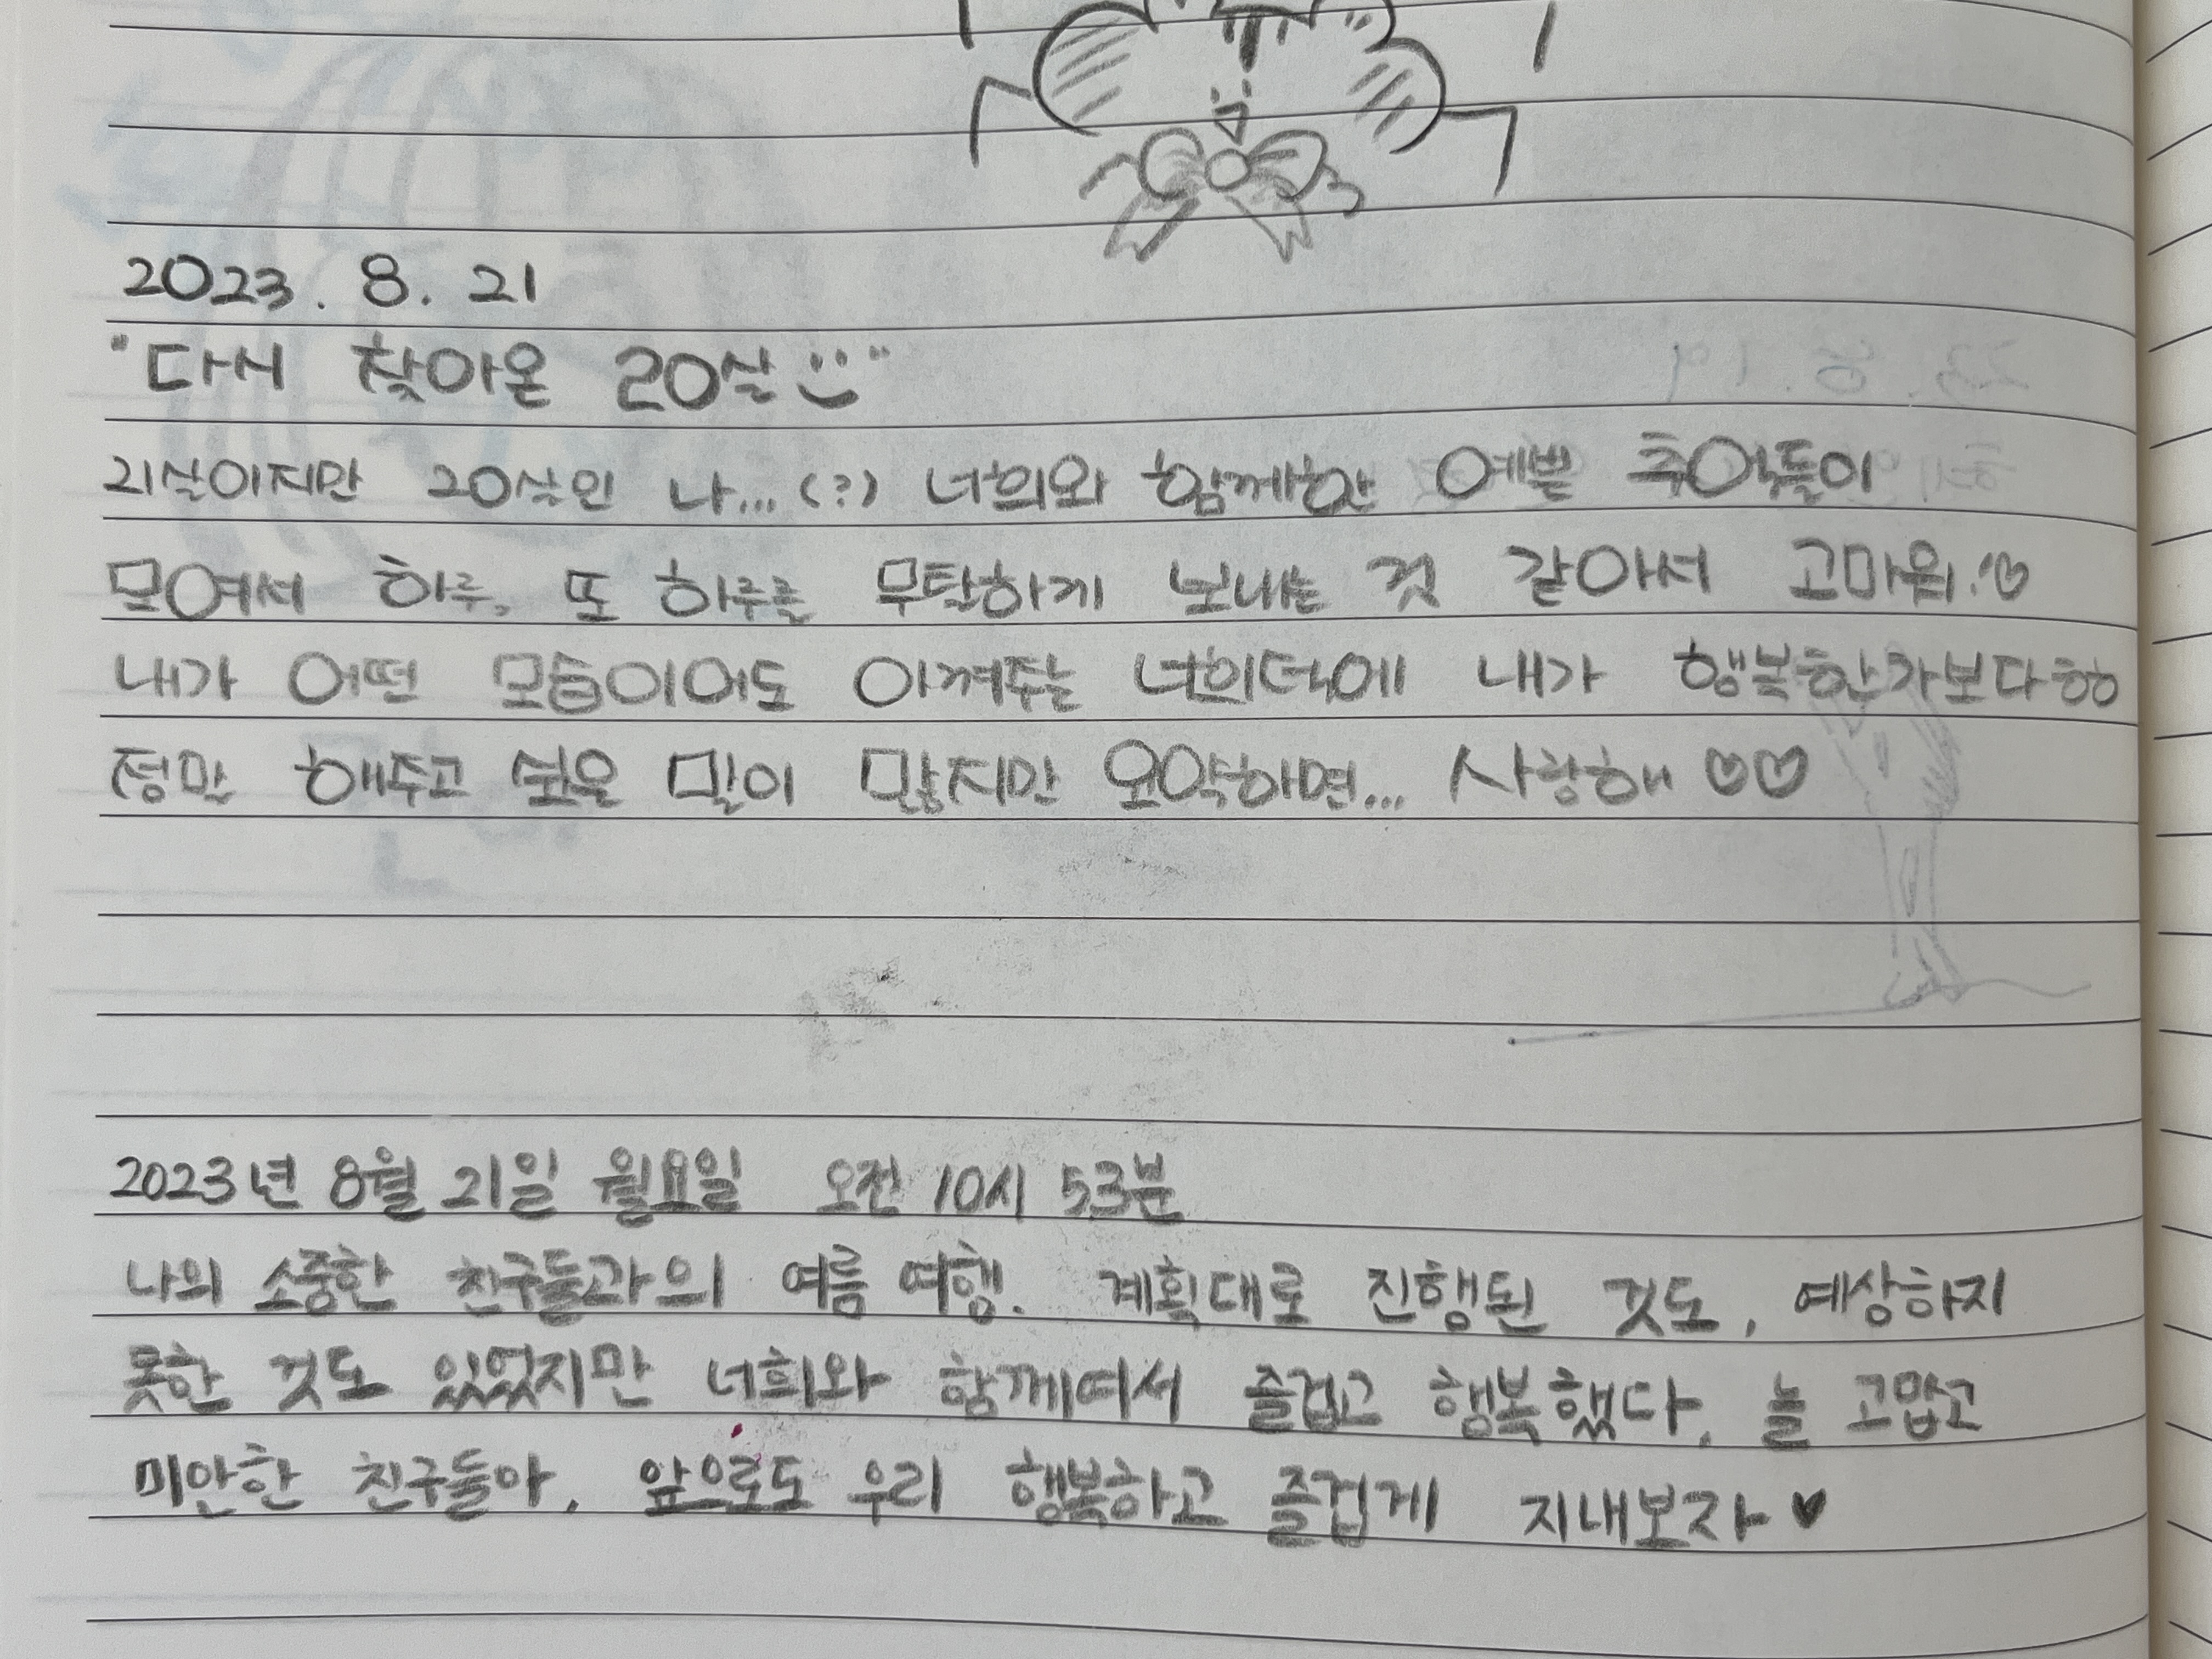 2023. 8. 21
"다시 찾아온 20살 :)"
21살이지만 20살인 나...(?) 너희와 함께한 예쁜 추억들이
모여서 하루, 또 하루를 무탈하게 보내는 것 같아서 고마워!♡
내가 어떤 모습이어도 아껴주는 너희덕에 내가 행복한가보다항
정말 해주고 싶은 말이 많지만 요약하면... 사랑해 ♡♡
2023년 8월 21일 월요일 오전 10시 53분
나의 소중한 친구들과의 여름 여행. 계획대로 진행된 것도, 예상하지
못한 것도 있었지만 너희와 함께여서 즐겁고 행복했다. 늘 고맙고
미안한 친구들아, 앞으로도 우리 행복하고 즐겁게 지내보자♥